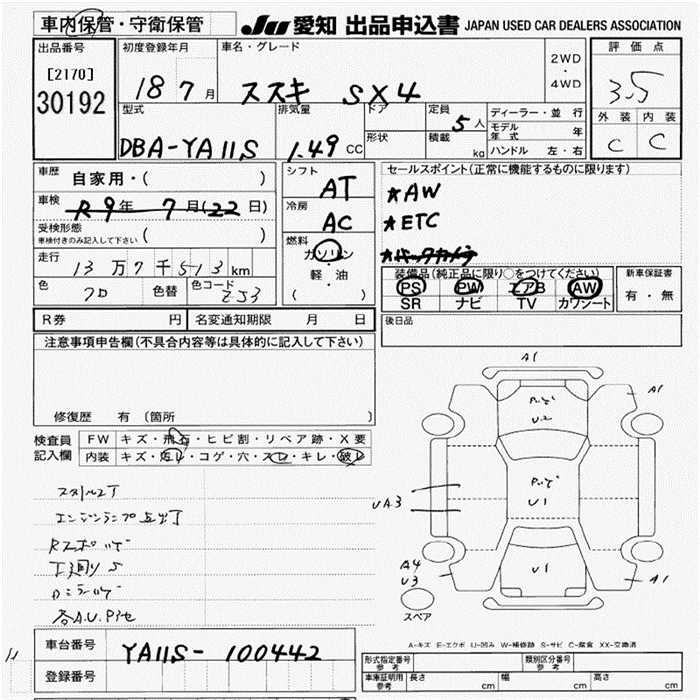 車内保管・守衛保管
JU 愛知 出品申込書 JAPAN USED CAR DEALERS ASSOCIATION
出品番号 初度登録年月 車名・グレード 2WD・4WD 評価点
[2170]
30192 18 7月 スズキ SX4 3.5
型式 排気量 ドア 定員 5人 ディーラー・並行 外装 内装
DBA-YA11S 1.49 CC 形状 積載 kg モデル年式 年 C C
ハンドル 左・右
車歴 自家用・( ) シフト AT セールスポイント(正常に機能するものに限ります)
車検 R9年 7月(22日) 冷房 AC ★AW
受検形態 ( ) ★ETC
車検付きのみ記入して下さい 燃料 ガソリン ★バックカメラ
走行 13万7千513km 軽・油 装備品(純正品に限り○をつけてください) 新車保証書
色 色替 色コード ZJ3 ( ) PS PW エアB AW 有・無
SR ナビ TV カワシート
R券 円 名変通知期限 月 日 後日品
注意事項申告欄(不具合内容等は具体的に記入して下さい)
修復歴 有 (箇所 )
検査員記入欄 FW キズ・飛石・ヒビ割・リペア跡・X要
内装 キズ・汚レ・コゲ・穴・スレ・キレ・破レ
エンジンランプ点出
各A.U.Pite
A1
A1
U2
UA3
U1
U1
A4
U3
A1
スペア
A-キズ E-エクボ U-凹み W-補修跡 S-サビ C-腐食 XX-交換済
車台番号 YA11S-100442
登録番号
形式指定番号 参考 類別区分番号 参考
車庫証明用 参考 長さ cm 幅 cm 高さ cm